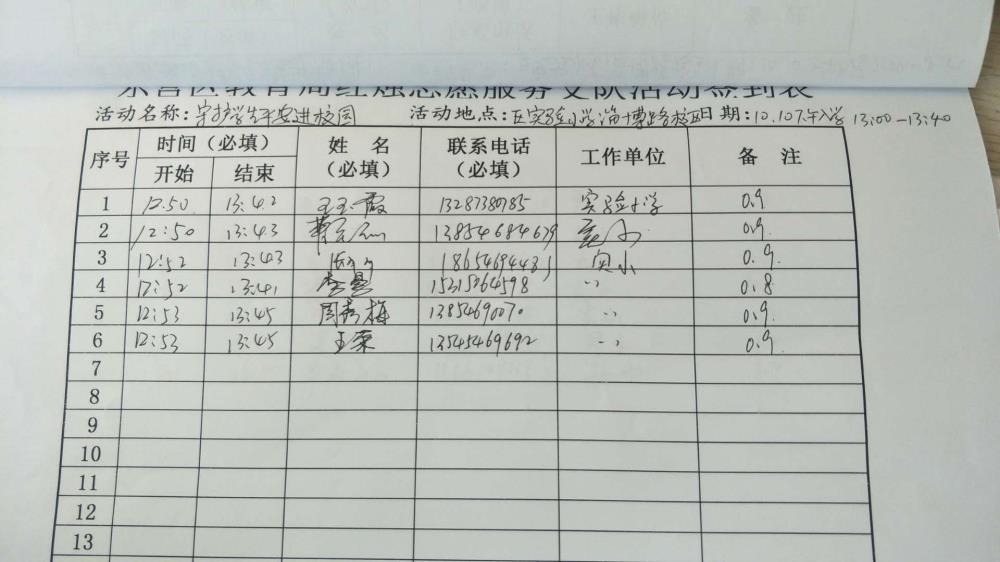 东营区教育局红烛志愿服务支队活动签到表
活动名称：守护学生平安进校园 活动地点：区实验小学淄博路校区 日期：10.10下午入学 13:00-13:40
序号 时间（必填） 姓名（必填） 联系电话（必填） 工作单位 备注
开始 结束
1 12.50 13:42 王玉霞 13287380785 实验小学 0.9
2 12:50 13:43 13854684679 0.9
3 12:52 13:43 实小 0.9
4 12:52 13:41 15215464598 〃 0.8
5 12:53 13:45 周秀梅 13854690070 〃 0.9
6 12:53 13:45 王栗 13545469692 〃 0.9
7
8
9
10
11
12
13